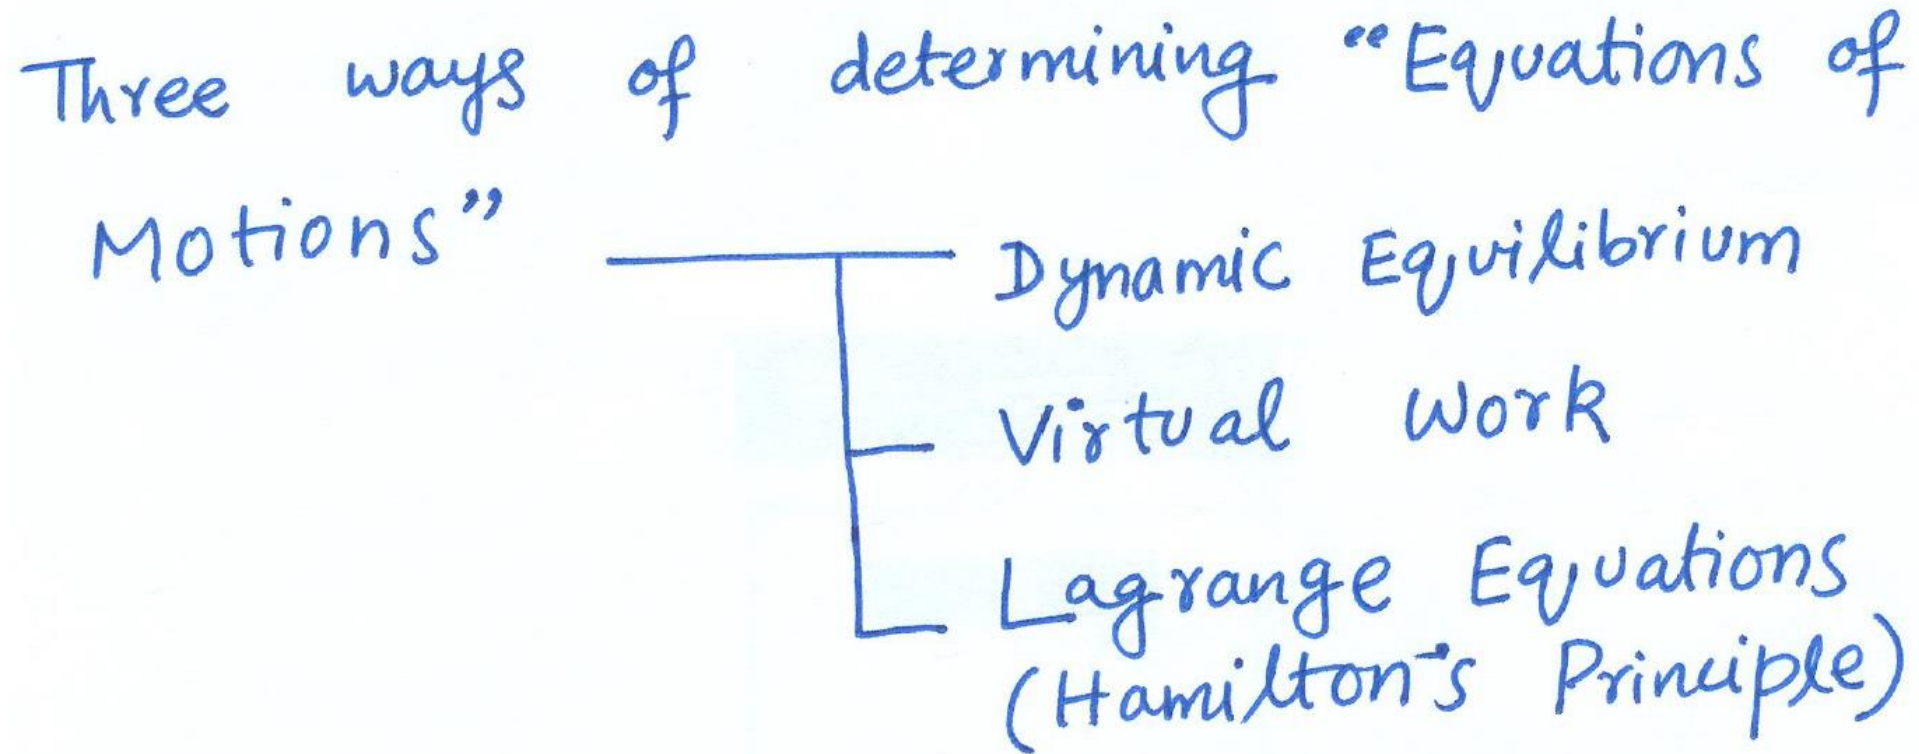 Three ways of determining “Equations of
Motions”
Dynamic Equilibrium
Virtual Work
Lagrange Equations
(Hamilton's Principle)